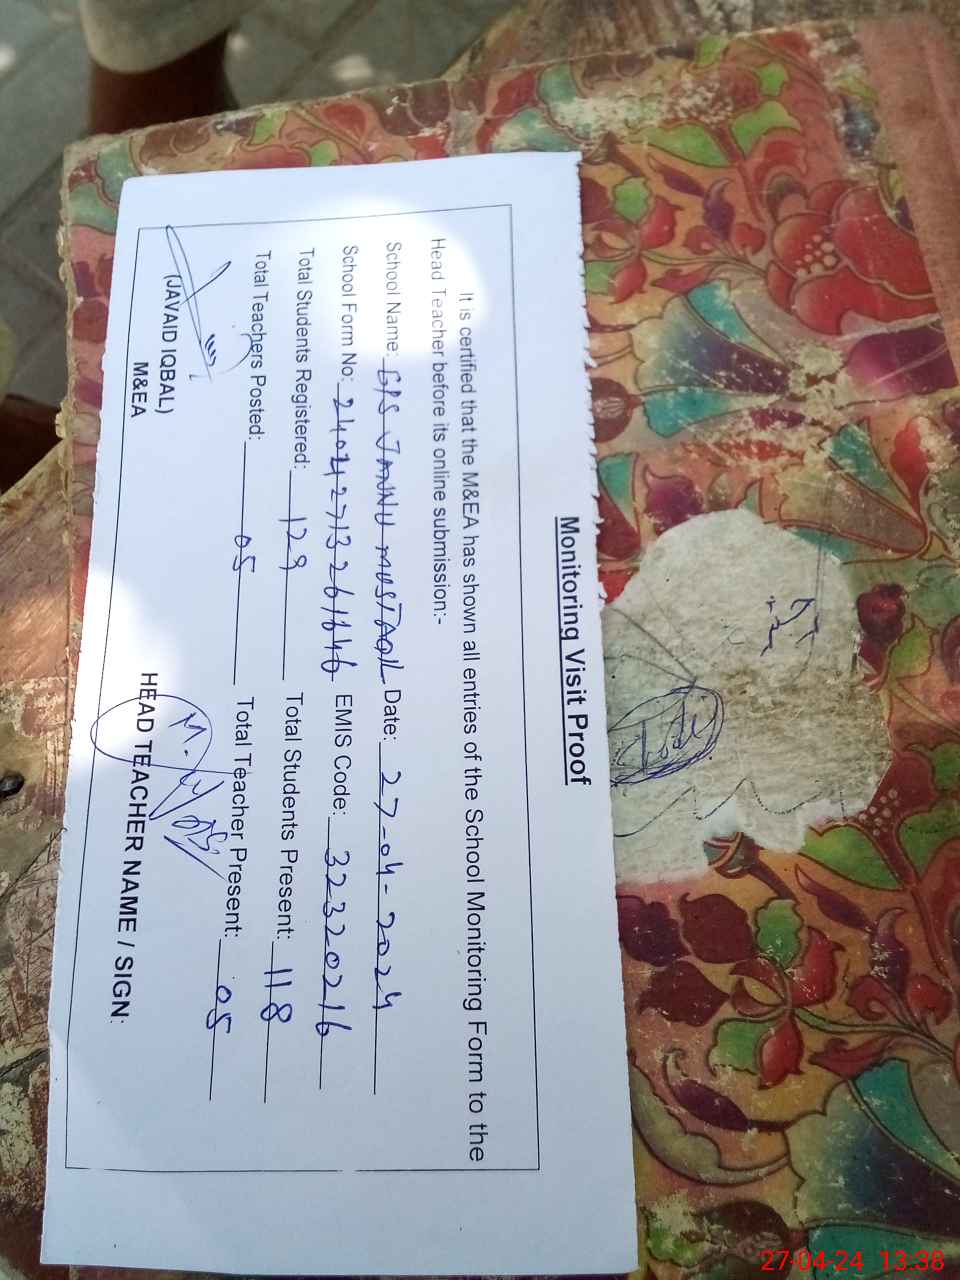 Monitoring Visit Proof
It is certified that the M&EA has shown all entries of the School Monitoring Form to the
Head Teacher before its online submission:-
School Name: GPS JANNU MUSTAQIL Date: 27-04-2024
School Form No: EMIS Code: 32320216
Total Students Registered: 129 Total Students Present: 118
Total Teachers Posted: 05 Total Teacher Present: 05
(JAVAID IQBAL)
M&EA
HEAD TEACHER NAME / SIGN:
27-04-24 13:38